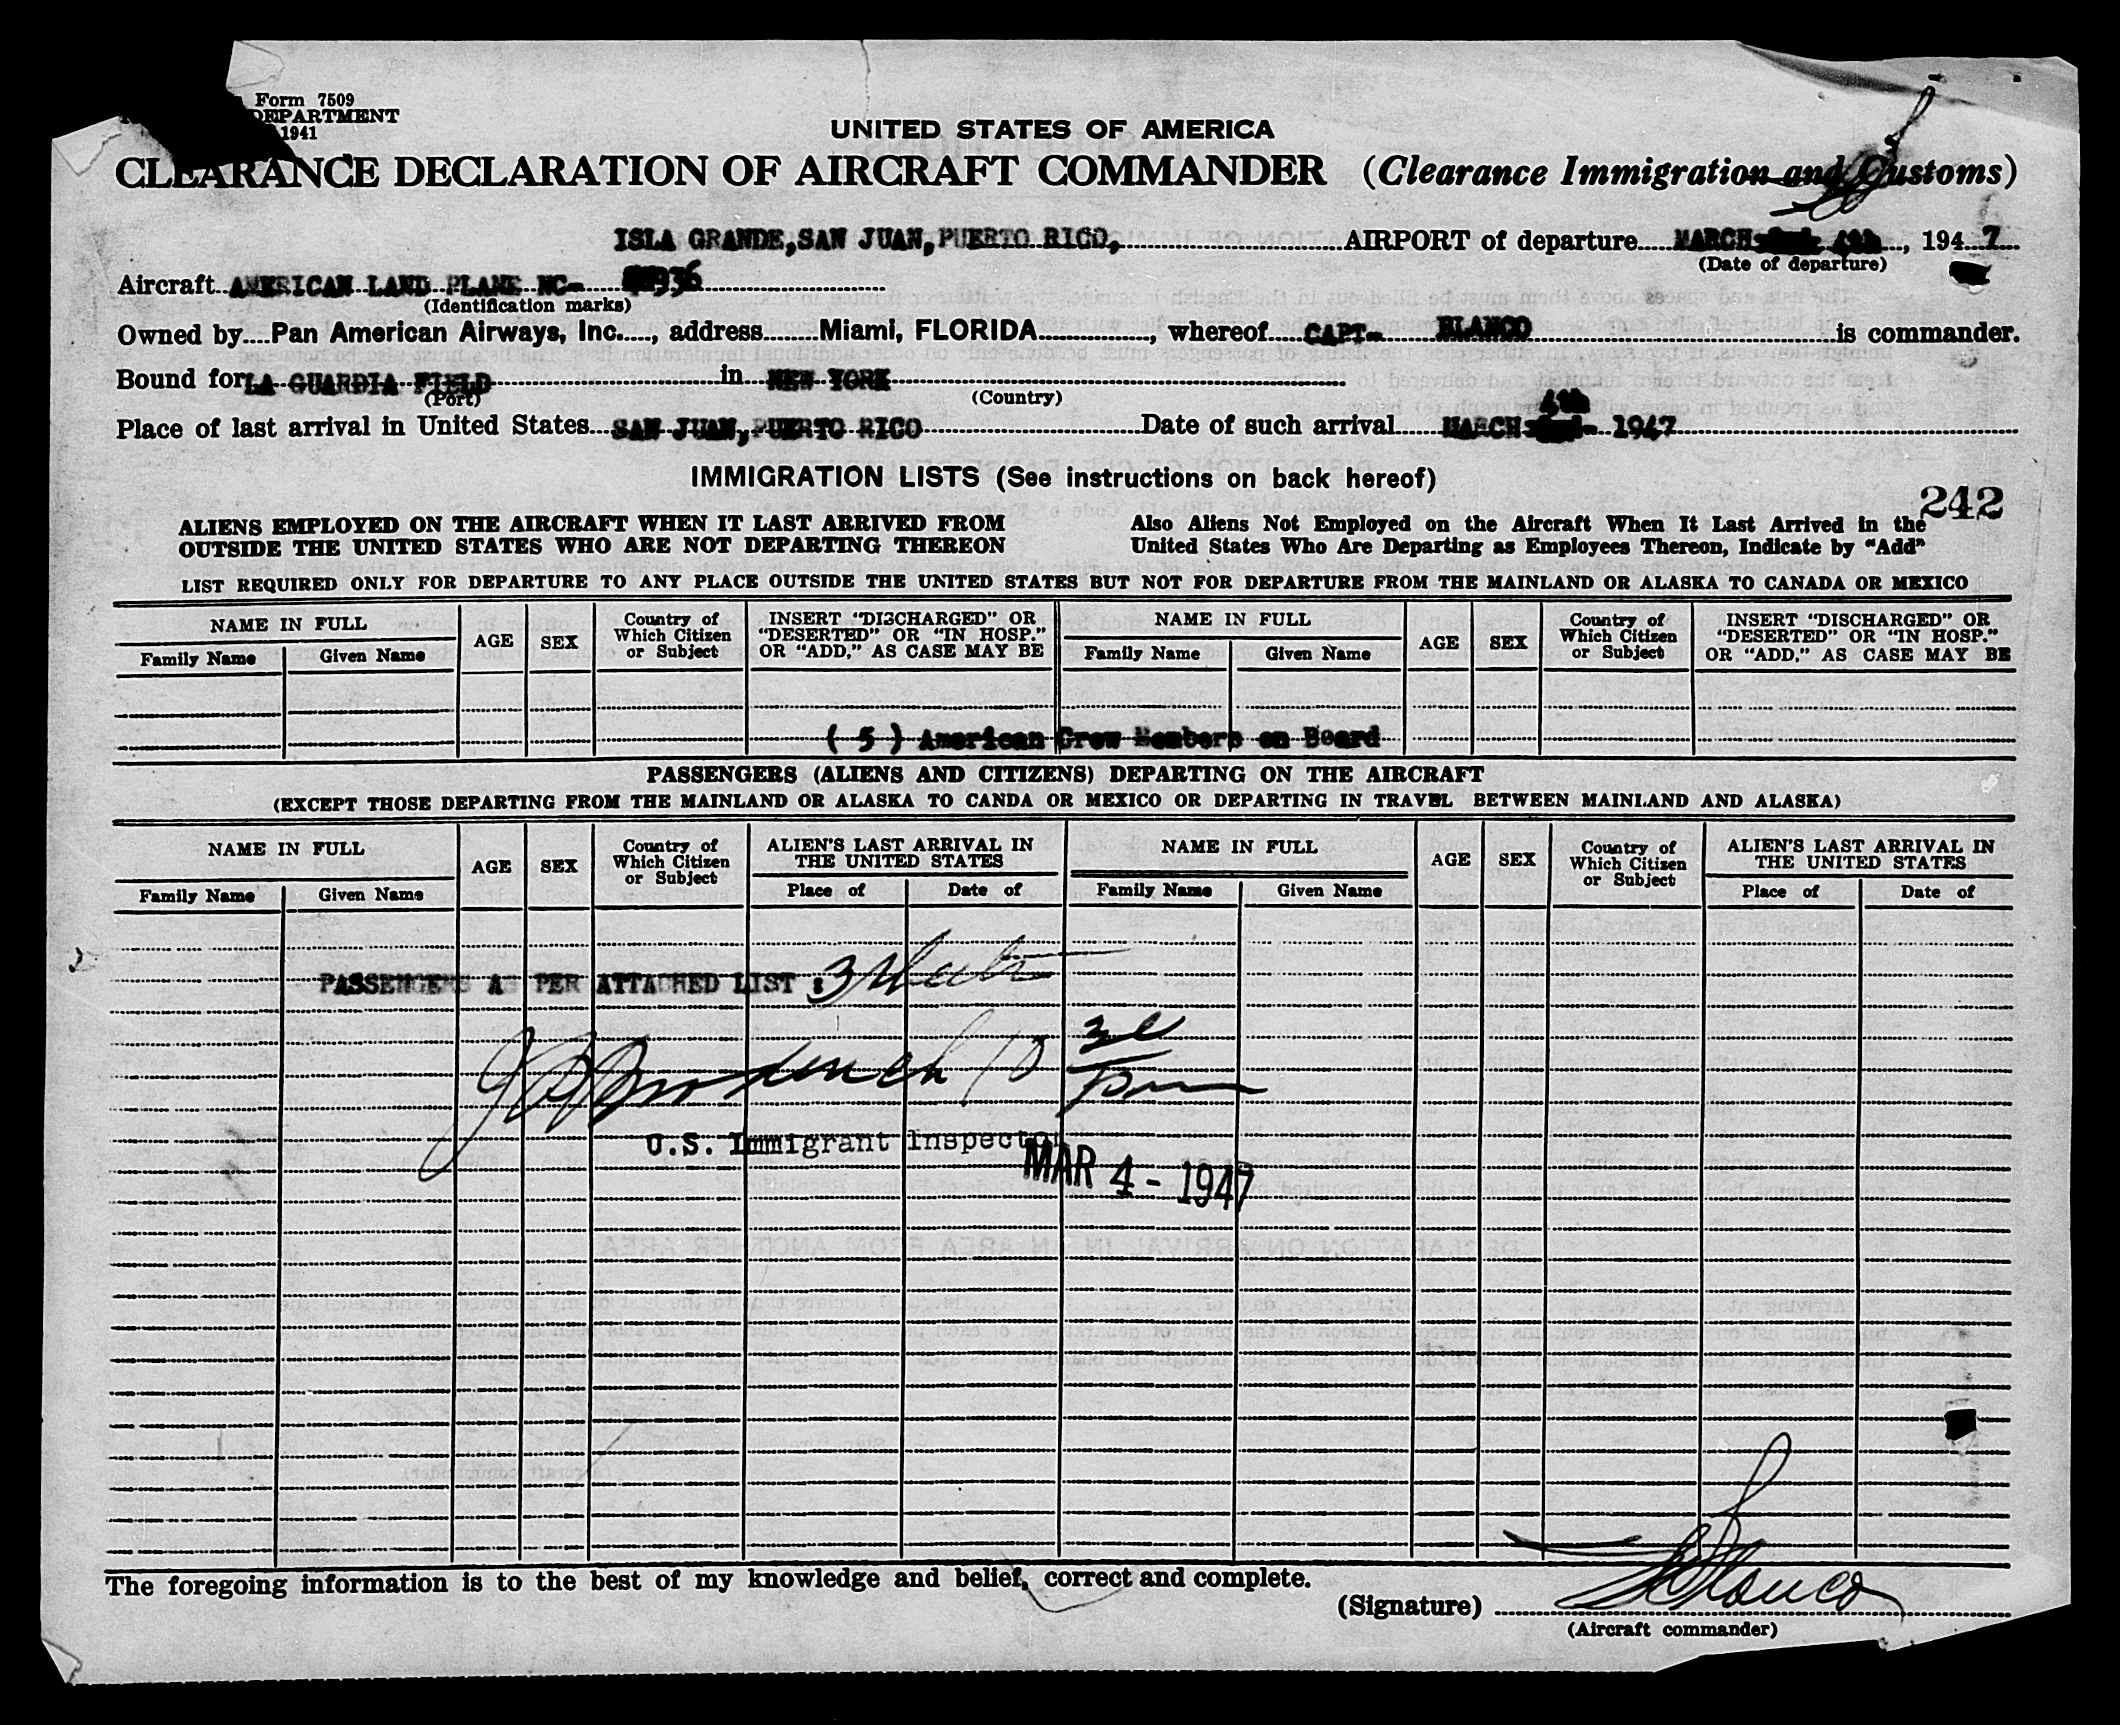 Form 7509
DEPARTMENT
1941
UNITED STATES OF AMERICA
CLEARANCE DECLARATION OF AIRCRAFT COMMANDER (Clearance Immigration and Customs)
ISLA GRANDE, SAN JUAN, PUERTO RICO, AIRPORT of departure MARCH 4th, 1947
(Date of departure)
Aircraft AMERICAN LAND PLANE NC- 936
(Identification marks)
Owned by Pan American Airways, Inc., address Miami, FLORIDA, whereof CAPT- BLANCO is commander.
Bound for LA GUARDIA FIELD in NEW YORK
(Port) (Country)
4th
Place of last arrival in United States SAN JUAN, PUERTO RICO Date of such arrival MARCH 1947
IMMIGRATION LISTS (See instructions on back hereof)
242
ALIENS EMPLOYED ON THE AIRCRAFT WHEN IT LAST ARRIVED FROM
OUTSIDE THE UNITED STATES WHO ARE NOT DEPARTING THEREON
Also Aliens Not Employed on the Aircraft When It Last Arrived in the
United States Who Are Departing as Employees Thereon, Indicate by "Add"
LIST REQUIRED ONLY FOR DEPARTURE TO ANY PLACE OUTSIDE THE UNITED STATES BUT NOT FOR DEPARTURE FROM THE MAINLAND OR ALASKA TO CANADA OR MEXICO
NAME IN FULL
Family Name Given Name
AGE
SEX
Country of
Which Citizen
or Subject
INSERT "DISCHARGED" OR
"DESERTED" OR "IN HOSP."
OR "ADD," AS CASE MAY BE
NAME IN FULL
Family Name Given Name
AGE
SEX
Country of
Which Citizen
or Subject
INSERT "DISCHARGED" OR
"DESERTED" OR "IN HOSP."
OR "ADD," AS CASE MAY BE
( 5 ) American Crew Members on Board
PASSENGERS (ALIENS AND CITIZENS) DEPARTING ON THE AIRCRAFT
(EXCEPT THOSE DEPARTING FROM THE MAINLAND OR ALASKA TO CANDA OR MEXICO OR DEPARTING IN TRAVEL BETWEEN MAINLAND AND ALASKA)
NAME IN FULL
Family Name Given Name
AGE
SEX
Country of
Which Citizen
or Subject
ALIEN'S LAST ARRIVAL IN
THE UNITED STATES
Place of Date of
NAME IN FULL
Family Name Given Name
AGE
SEX
Country of
Which Citizen
or Subject
ALIEN'S LAST ARRIVAL IN
THE UNITED STATES
Place of Date of
PASSENGERS AS PER ATTACHED LIST : 3
U.S. Immigrant Inspector
MAR 4 - 1947
The foregoing information is to the best of my knowledge and belief, correct and complete.
(Signature) Blanco
(Aircraft commander)